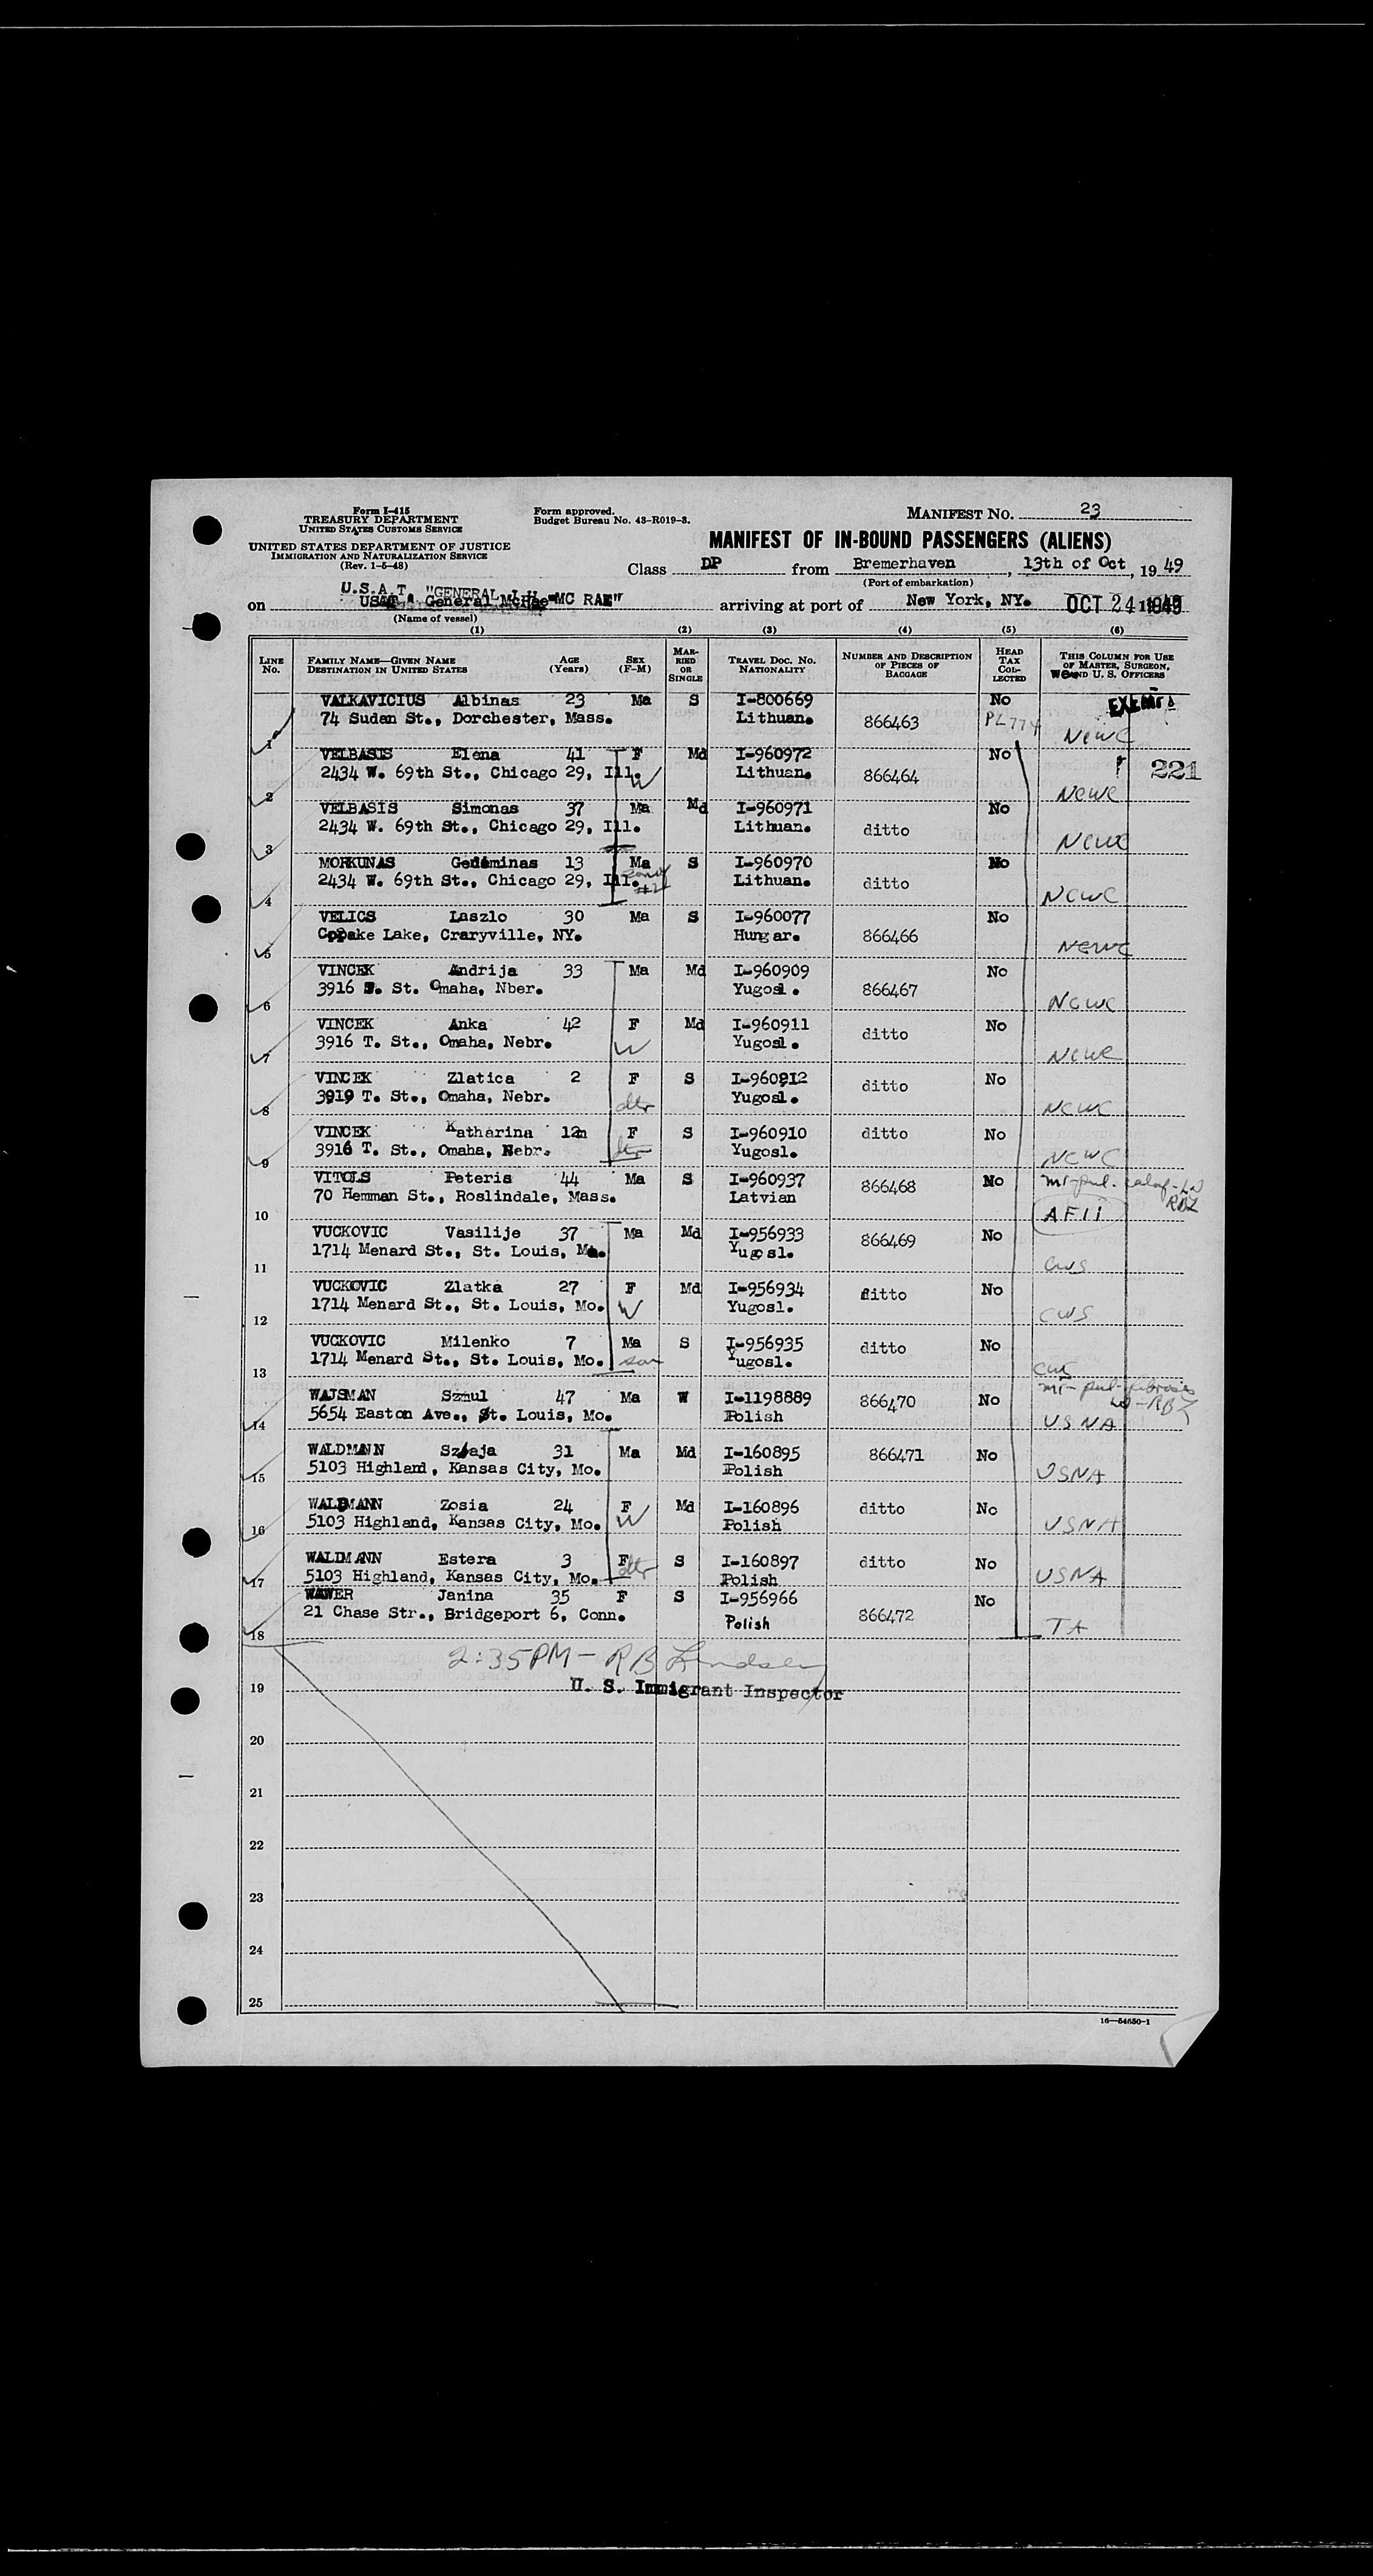 Form I-415
TREASURY DEPARTMENT
UNITED STATES CUSTOMS SERVICE
UNITED STATES DEPARTMENT OF JUSTICE
IMMIGRATION AND NATURALIZATION SERVICE
(Rev. 1-5-48)
Form approved.
Budget Bureau No. 43-R019-3.
MANIFEST NO. 23
MANIFEST OF IN-BOUND PASSENGERS (ALIENS)
Class DP from Bremerhaven, 13th of Oct, 19 49
(Port of embarkation)
on U.S.A.T. "GENERAL MC RAE" arriving at port of New York, NY. OCT 24 1949
(Name of vessel)
(1) (2) (3) (4) (5) (6)
LINE NO.
FAMILY NAME—GIVEN NAME
DESTINATION IN UNITED STATES
AGE (Years)
SEX (F-M)
MARRIED OR SINGLE
TRAVEL DOC. NO. NATIONALITY
NUMBER AND DESCRIPTION OF PIECES OF BAGGAGE
HEAD TAX COLLECTED
THIS COLUMN FOR USE OF MASTER, SURGEON, AND U. S. OFFICERS
VALKAVICIUS Albinas 23 Ma S I-800669 No EXEMPT
1 74 Sudan St., Dorchester, Mass. Lithuan. 866463 PL774 NCWC
VELBASIS Elena 41 F Md I-960972 No 221
2 2434 W. 69th St., Chicago 29, Ill. W Lithuan. 866464 NCWC
VELBASIS Simonas 37 Ma Md I-960971 No
3 2434 W. 69th St., Chicago 29, Ill. Lithuan. ditto NCWC
MORKUNAS Gediminas 13 Ma S I-960970 No
4 2434 W. 69th St., Chicago 29, Ill. son of #2 Lithuan. ditto NCWC
VELICS Laszlo 30 Ma S I-960077 No
5 Copake Lake, Craryville, NY. Hungar. 866466 NCWC
VINCEK Andrija 33 Ma Md I-960909 No
6 3916 T. St. Omaha, Nber. Yugosl. 866467 NCWC
VINCEK Anka 42 F Md I-960911 No
7 3916 T. St., Omaha, Nebr. W Yugosl. ditto NCWC
VINCEK Zlatica 2 F S I-960912 No
8 3919 T. St., Omaha, Nebr. dtr Yugosl. ditto NCWC
VINCEK Katharina 12m F S I-960910 ditto No
9 3916 T. St., Omaha, Nebr. dtr Yugosl. NCWC
VITOLS Peteris 44 Ma S I-960937 No mi-pul. RBL
10 70 Hemman St., Roslindale, Mass. Latvian 866468 AFii
VUCKOVIC Vasilije 37 Ma Md I-956933 No
11 1714 Menard St., St. Louis, Mo. Yugosl. 866469 CWS
VUCKOVIC Zlatka 27 F Md I-956934 No
12 1714 Menard St., St. Louis, Mo. W Yugosl. ditto CWS
VUCKOVIC Milenko 7 Ma S I-956935 No
13 1714 Menard St., St. Louis, Mo. son Yugosl. ditto CWS
WAJSMAN Szmul 47 Ma W I-1198889 No mi-pul-fibrosis
14 5654 Easton Ave., St. Louis, Mo. Polish 866470 USNA
WALDMANN Szaja 31 Ma Md I-160895 866471 No
15 5103 Highland, Kansas City, Mo. Polish USNA
WALDMANN Zosia 24 F Md I-160896 ditto No
16 5103 Highland, Kansas City, Mo. W Polish USNA
WALDMANN Estera 3 F S I-160897 ditto No
17 5103 Highland, Kansas City, Mo. dtr Polish USNA
WAWER Janina 35 F S I-956966 No
18 21 Chase Str., Bridgeport 6, Conn. Polish 866472 TA
2:35PM - RB Lindsey
19 U. S. Immigrant Inspector
20
21
22
23
24
25
16—54650-1